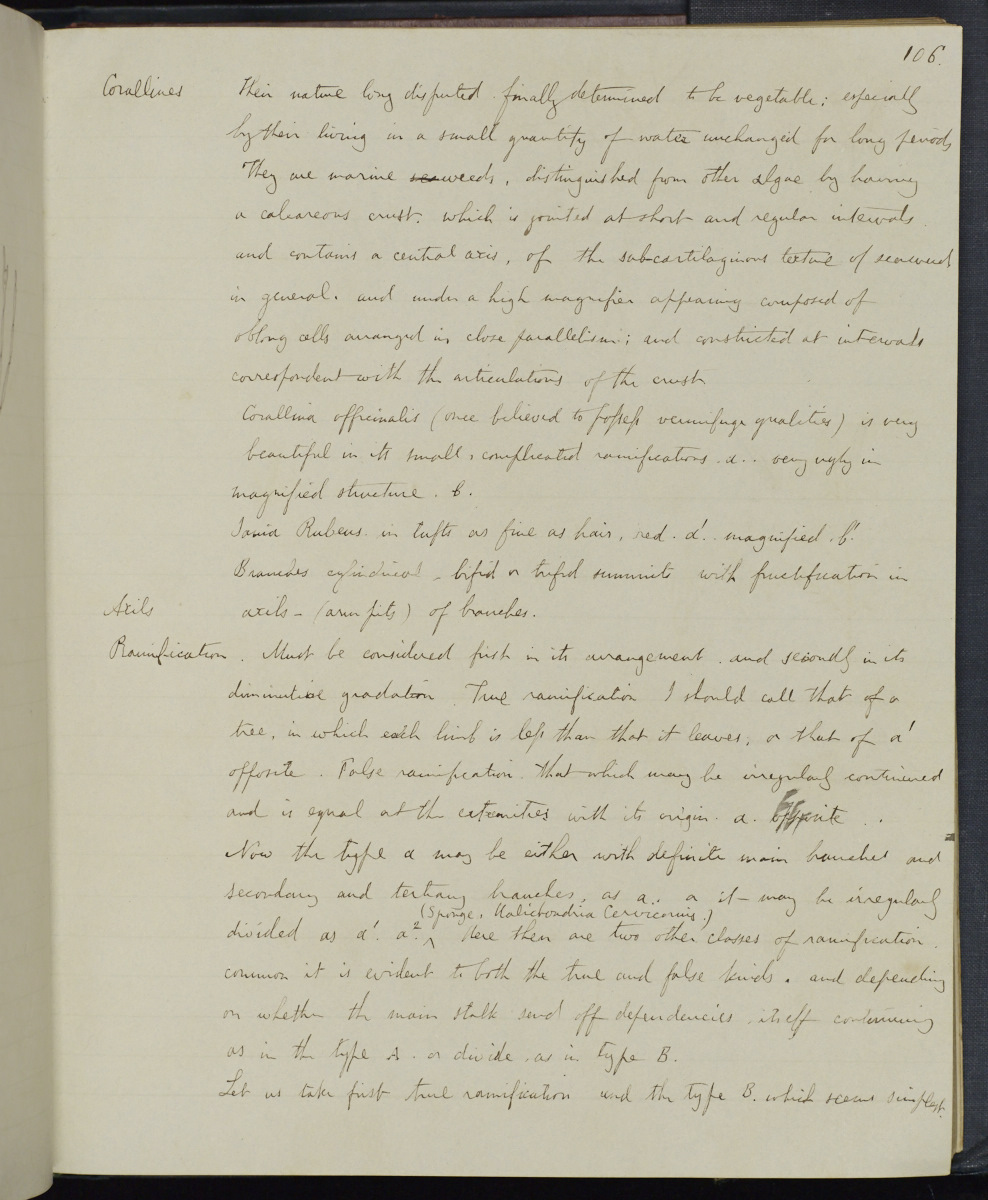 106.
Corallines Their nature long disputed. finally determined to be vegetable; especially
by their living in a small quantity of water unchanged for long periods
They are marine seaweeds, distinguished from other algae by having
a calcareous crust. which is jointed at short and regular intervals.
and contains a central axis, of the subcartilaginous texture of seaweed
in general. and under a high magnifier appearing composed of
oblong cells arranged in close parallelism; and constricted at intervals
correspondent with the articulations of the crust
Corallina officinalis (once believed to possess vermifuge qualities) is very
beautiful in its small, complicated ramifications. a.. very ugly in
magnified structure. b.
Jania Rubens. in tufts as fine as hair, red. a'.. magnified. b'.
Branches cylindrical - bifid or trifid summits with fructification in
Axils axils - (arm pits) of branches.
Ramification. Must be considered first in its arrangement. and secondly in its
diminutive gradation. True ramification I should call that of a
tree, in which each limb is less than that it leaves, or that of a'
opposite. False ramification. that which may be irregularly continued
and is equal at the extremities with its origin. a. opposite..
Now the type a may be either with definite main branches and
secondary and tertiary branches, as a.. or it may be irregularly
(Sponge, Halichondria Cervicornis.)
divided as a'. a². ^ Here then are two other classes of ramification.
common it is evident to both the true and false kinds. and depending
on whether the main stalk send off dependencies, itself continuing
as in the type A. or divide, as in type B.
Let us take first true ramification and the type B. which seems simplest.